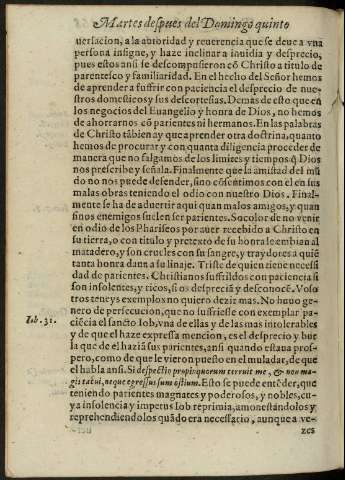 Martes despues del Domingo quinto
uersacion, a la autoridad y reuerencia que se deue a vna
persona insigne, y haze inclinar a inuidia y desprecio,
pues estos ansi se descompusieron cõ Christo a titulo de
parentesco y familiaridad. En el hecho del Señor hemos
de aprender a suffrir con paciencia el desprecio de nue-
stros domesticos y sus descortesias. Demas de esto que en
los negocios del Euangelio y honra de Dios, no hemos
de ahorrarnos cõ parientes ni hermanos. En las palabras
de Christo tãbien ay que aprender otra doctrina, quanto
hemos de procurar y con quanta diligencia proceder de
manera que no salgamos de los limites y tiempos q̃ Dios
nos prescribe y señala. Finalmente que la amistad del mũ
do no nos puede defender, sino cõsentimos con el en sus
malas obras teniendo el odio con nuestro Dios. Final-
mente se ha de aduertir aqui quan malos amigos, y quan
finos enemigos suelen ser parientes. So color de no venir
en odio de los Phariseos por auer recebido a Christo en
su tierra, o con titulo y pretexto de su honra le embian al
matadero, y son crueles con su sangre, y traydores a quiẽ
tanta honra daua a su linaje. Triste de quien tiene necessi
dad de parientes. Christianos suffrildos con paciencia si
son insolentes, y ricos, si os desprecia y desconocẽ. Vos-
otros teneys exemplos no quiero dezir mas. No huuo ge-
nero de persecucion, que no suffriesse con exemplar pa-
Iob. 31.
ciẽcia el sancto Iob, vna de ellas y de las mas intolerables
y de que el haze expressa mencion, es el desprecio y bur
la que de el haziã sus parientes, ansi quando estaua pros-
pero, como de que le vieron puesto en el muladar, de que
el habla ansi. Si despectio propinquorum terruit me, & non ma-
gis tacui, neque egressus sum ostium. Esto se puede entẽder, que
teniendo parientes magnates y poderosos, y nobles, cu-
ya insolencia y impetus Iob reprimia, amonestandolos y
reprehendiendolos quãdo era necessario, aunque a ve-
zes